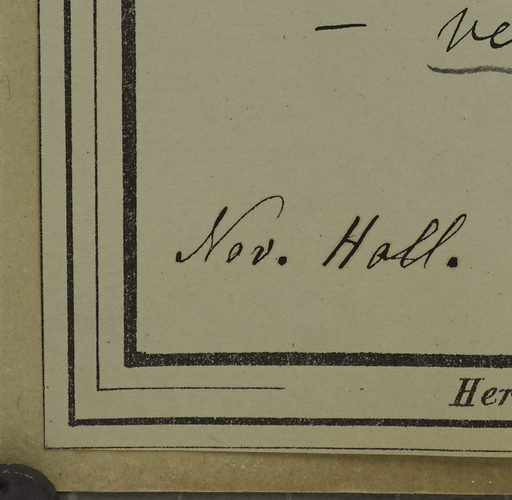 — ve
Nov. Holl.
Her